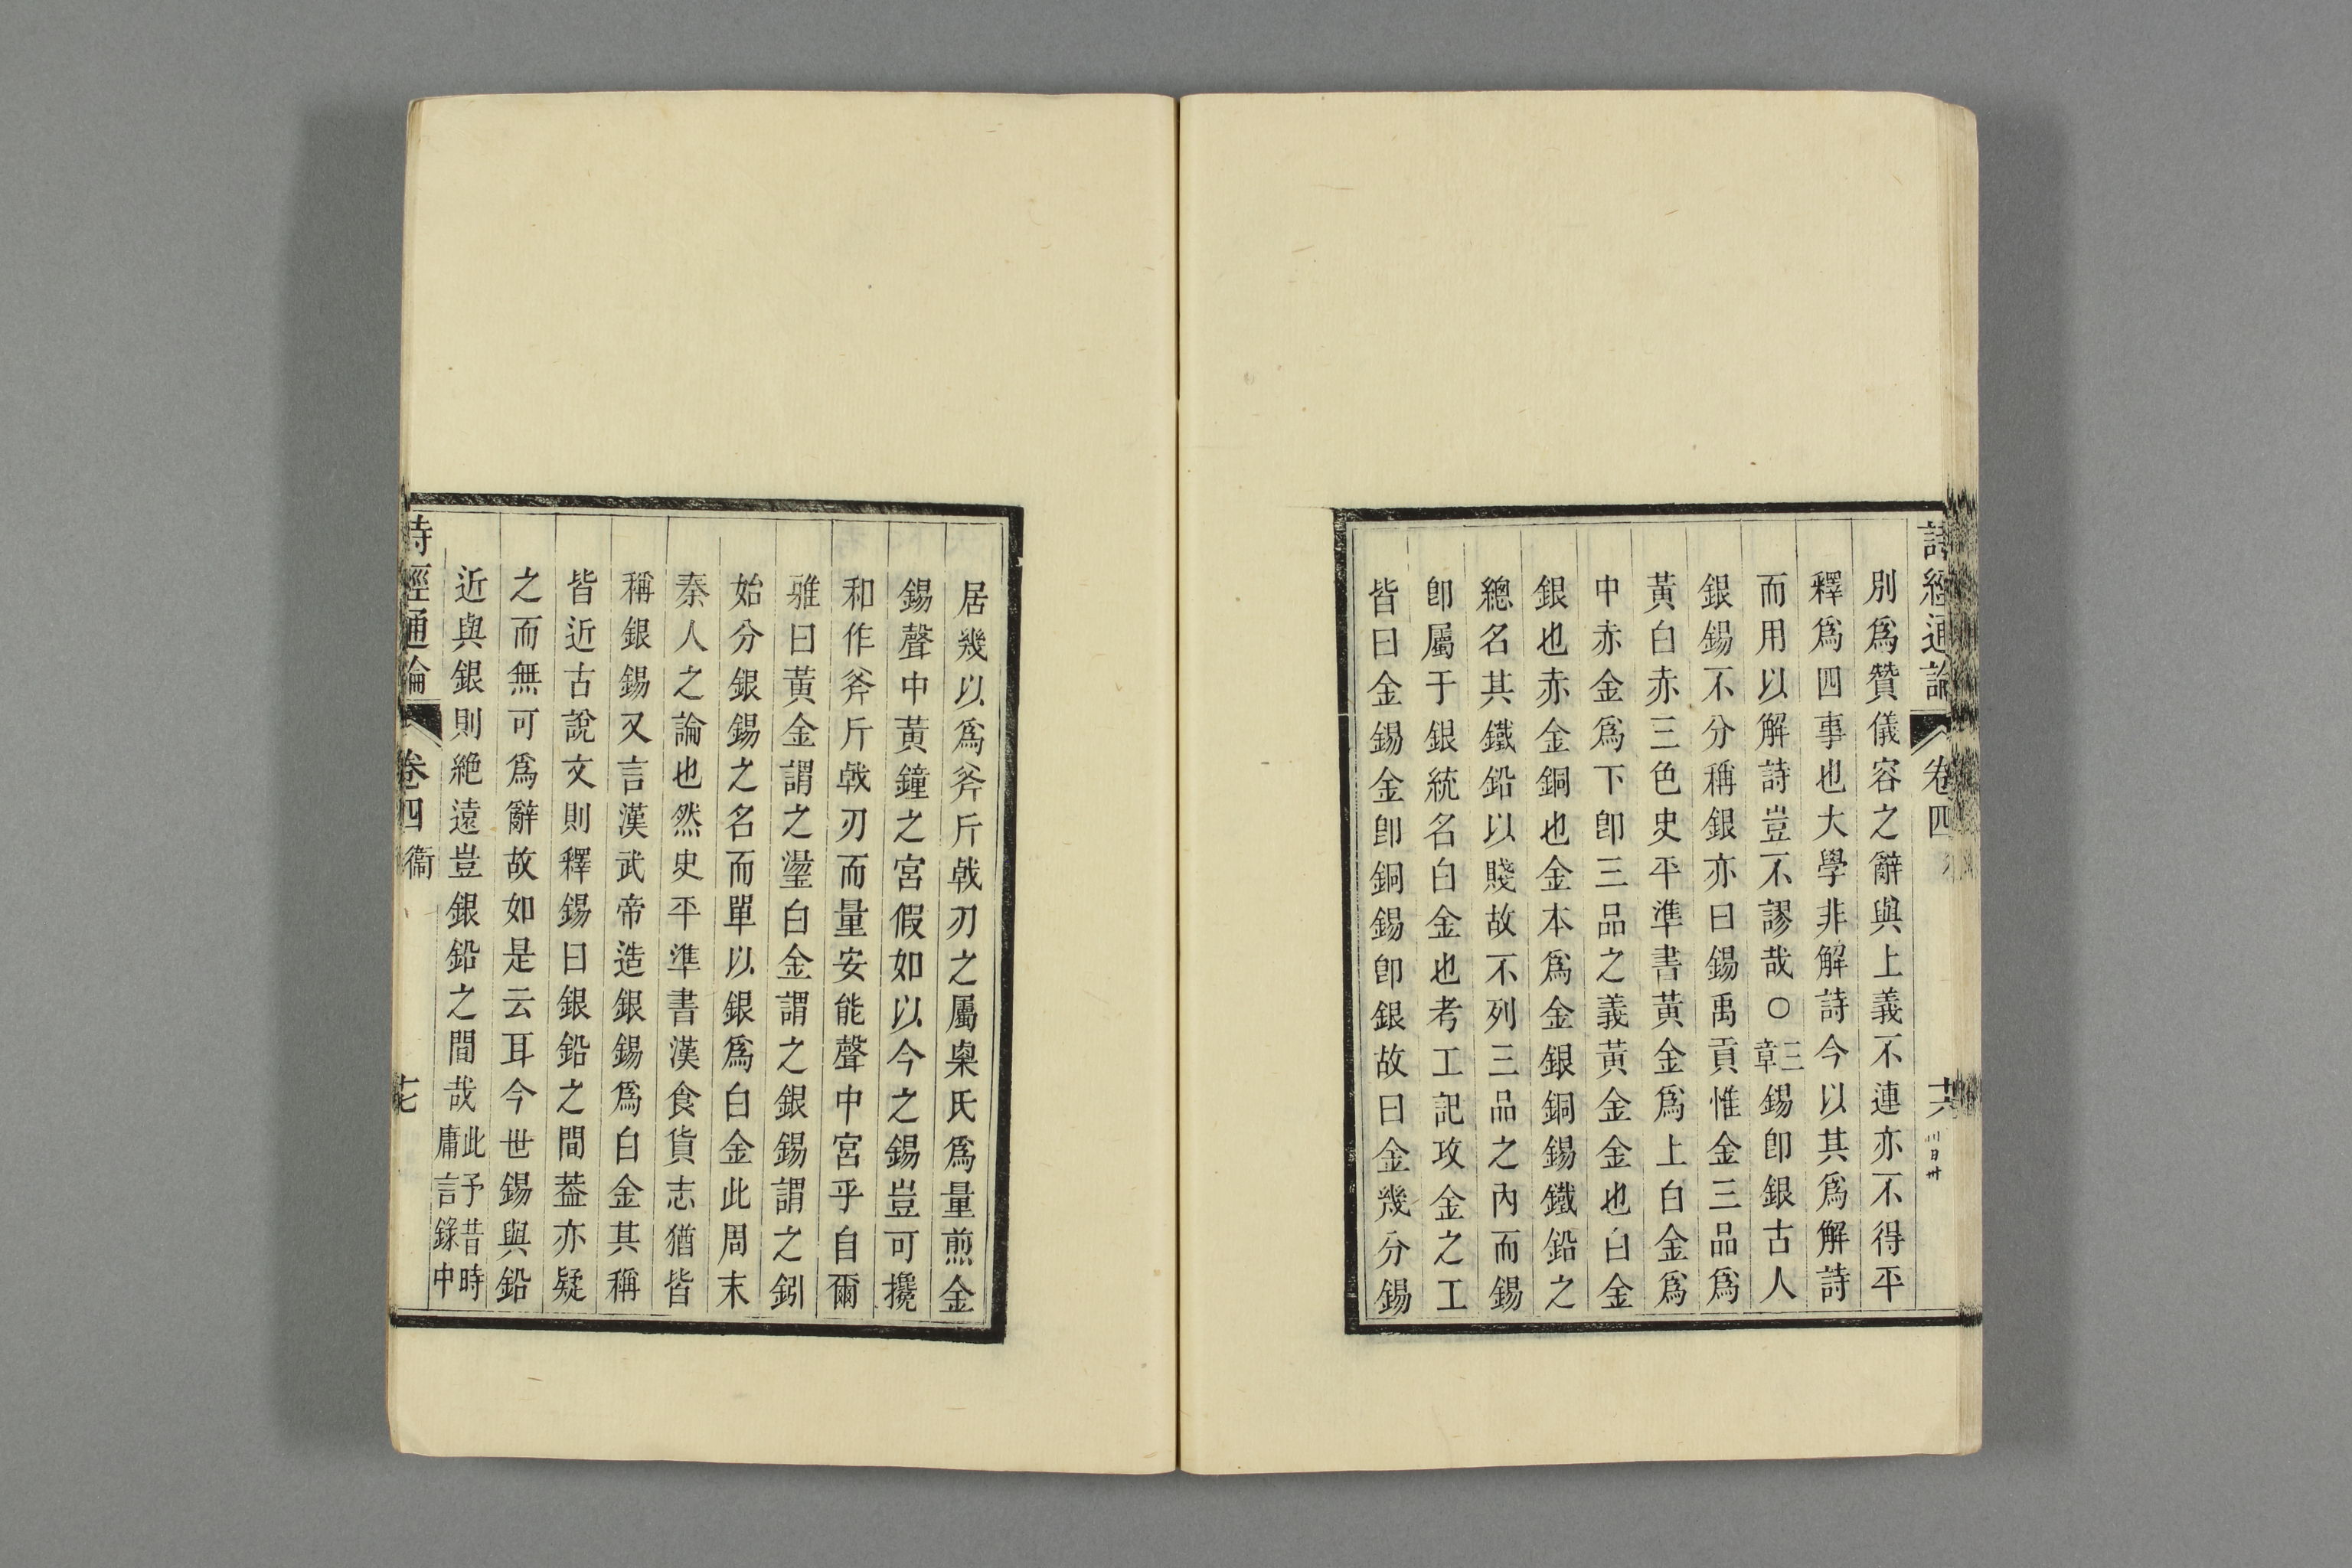 詩經通論 卷四 十六
別爲贊儀容之辭與上義不連亦不得平
釋爲四事也大學非解詩今以其爲解詩
而用以解詩豈不謬哉○三章錫卽銀古人
銀錫不分稱銀亦曰錫禹貢惟金三品爲
黃白赤三色史平準書黃金爲上白金爲
中赤金爲下卽三品之義黃金金也白金
銀也赤金銅也金本爲金銀銅錫鐵鉛之
總名其鐵鉛以賤故不列三品之內而錫
卽屬于銀統名白金也考工記攻金之工
皆曰金錫金卽銅錫卽銀故曰金幾分錫
居幾以爲斧斤戟刃之屬㮚氏爲量煎金
錫聲中黃鐘之宮假如以今之錫豈可攙
和作斧斤戟刃而量安能聲中宮乎自爾
雅曰黃金謂之璗白金謂之銀錫謂之鈏
始分銀錫之名而單以銀爲白金此周末
秦人之論也然史平準書漢食貨志猶皆
稱銀錫又言漢武帝造銀錫爲白金其稱
皆近古說文則釋錫曰銀鉛之間葢亦疑
之而無可爲辭故如是云耳今世錫與鉛
近與銀則絶遠豈銀鉛之間哉此予昔時庸言錄中
詩經通論 卷四 衞 十七